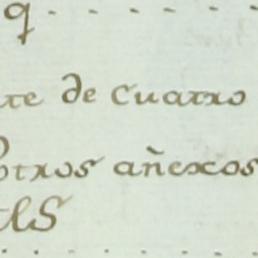 q
te de cuatro
otros añexos